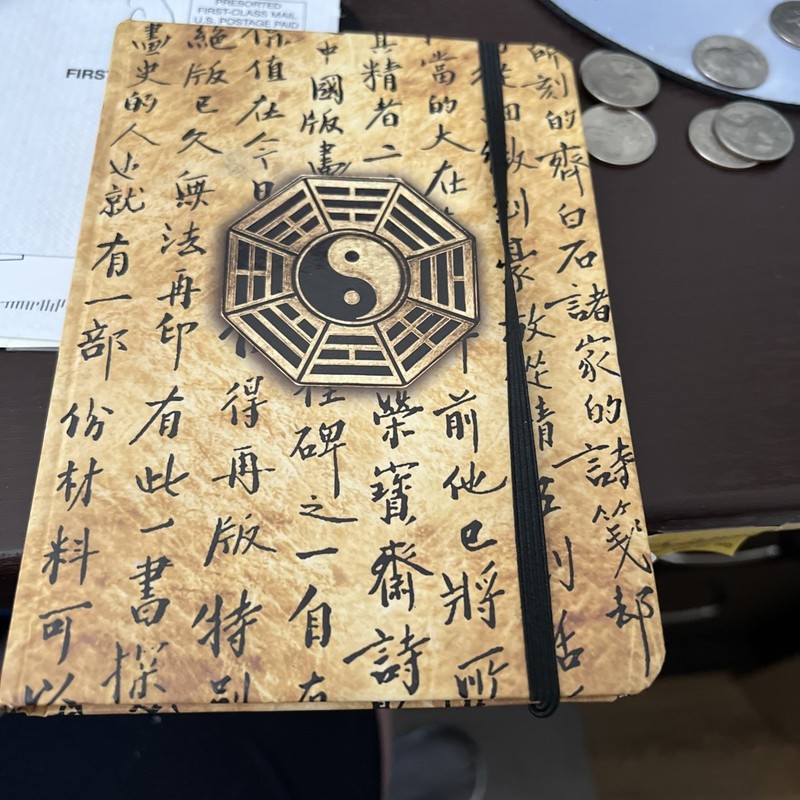 PRESORTED
FIRST-CLASS MAIL
U.S. POSTAGE PAID
FIRST
所刻的齊白石諸家的詩箋都
到豪放從清
當的大在
前他已將所
其精者二
榮寶齋詩
中國版畫
在碑之一自有
保值在今日
得再版特別
絕版已久無法再印有此一書
畫史的人也就有一部份材料可以